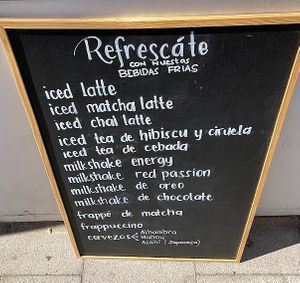 Refrescáte
con nuestas
BEBIDAS FRIAS
iced latte
iced matcha latte
iced chai latte
iced tea de hibiscu y ciruela
iced tea de cebada
milkshake energy
milkshake red passion
milkshake de oreo
milkshake de chocolate
frappé de matcha
frappuccino
Alhambra
cervezas Mahou
Asahi (Japonesa)